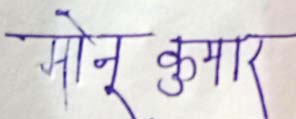 मोनू कुमार